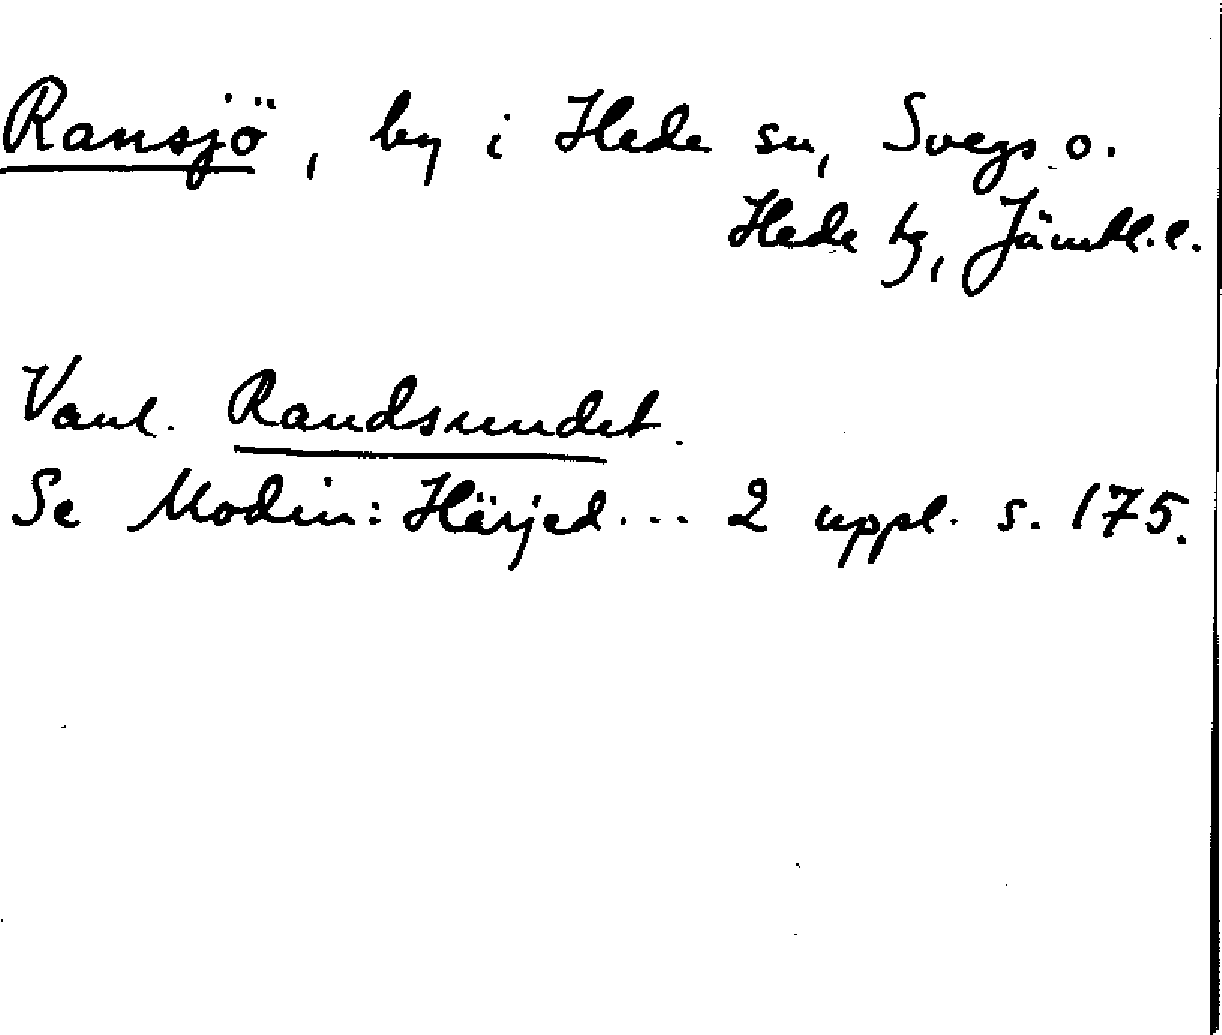 Ransjö, by i Hede sn, Svegs o.
Hede tg, Jämtl.l.
Vanl. Randsundet.
Se Modin: Härjed... 2 uppl. s. 175.